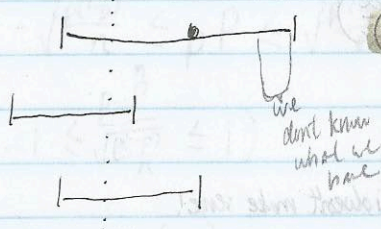 we
don't know
what we
have